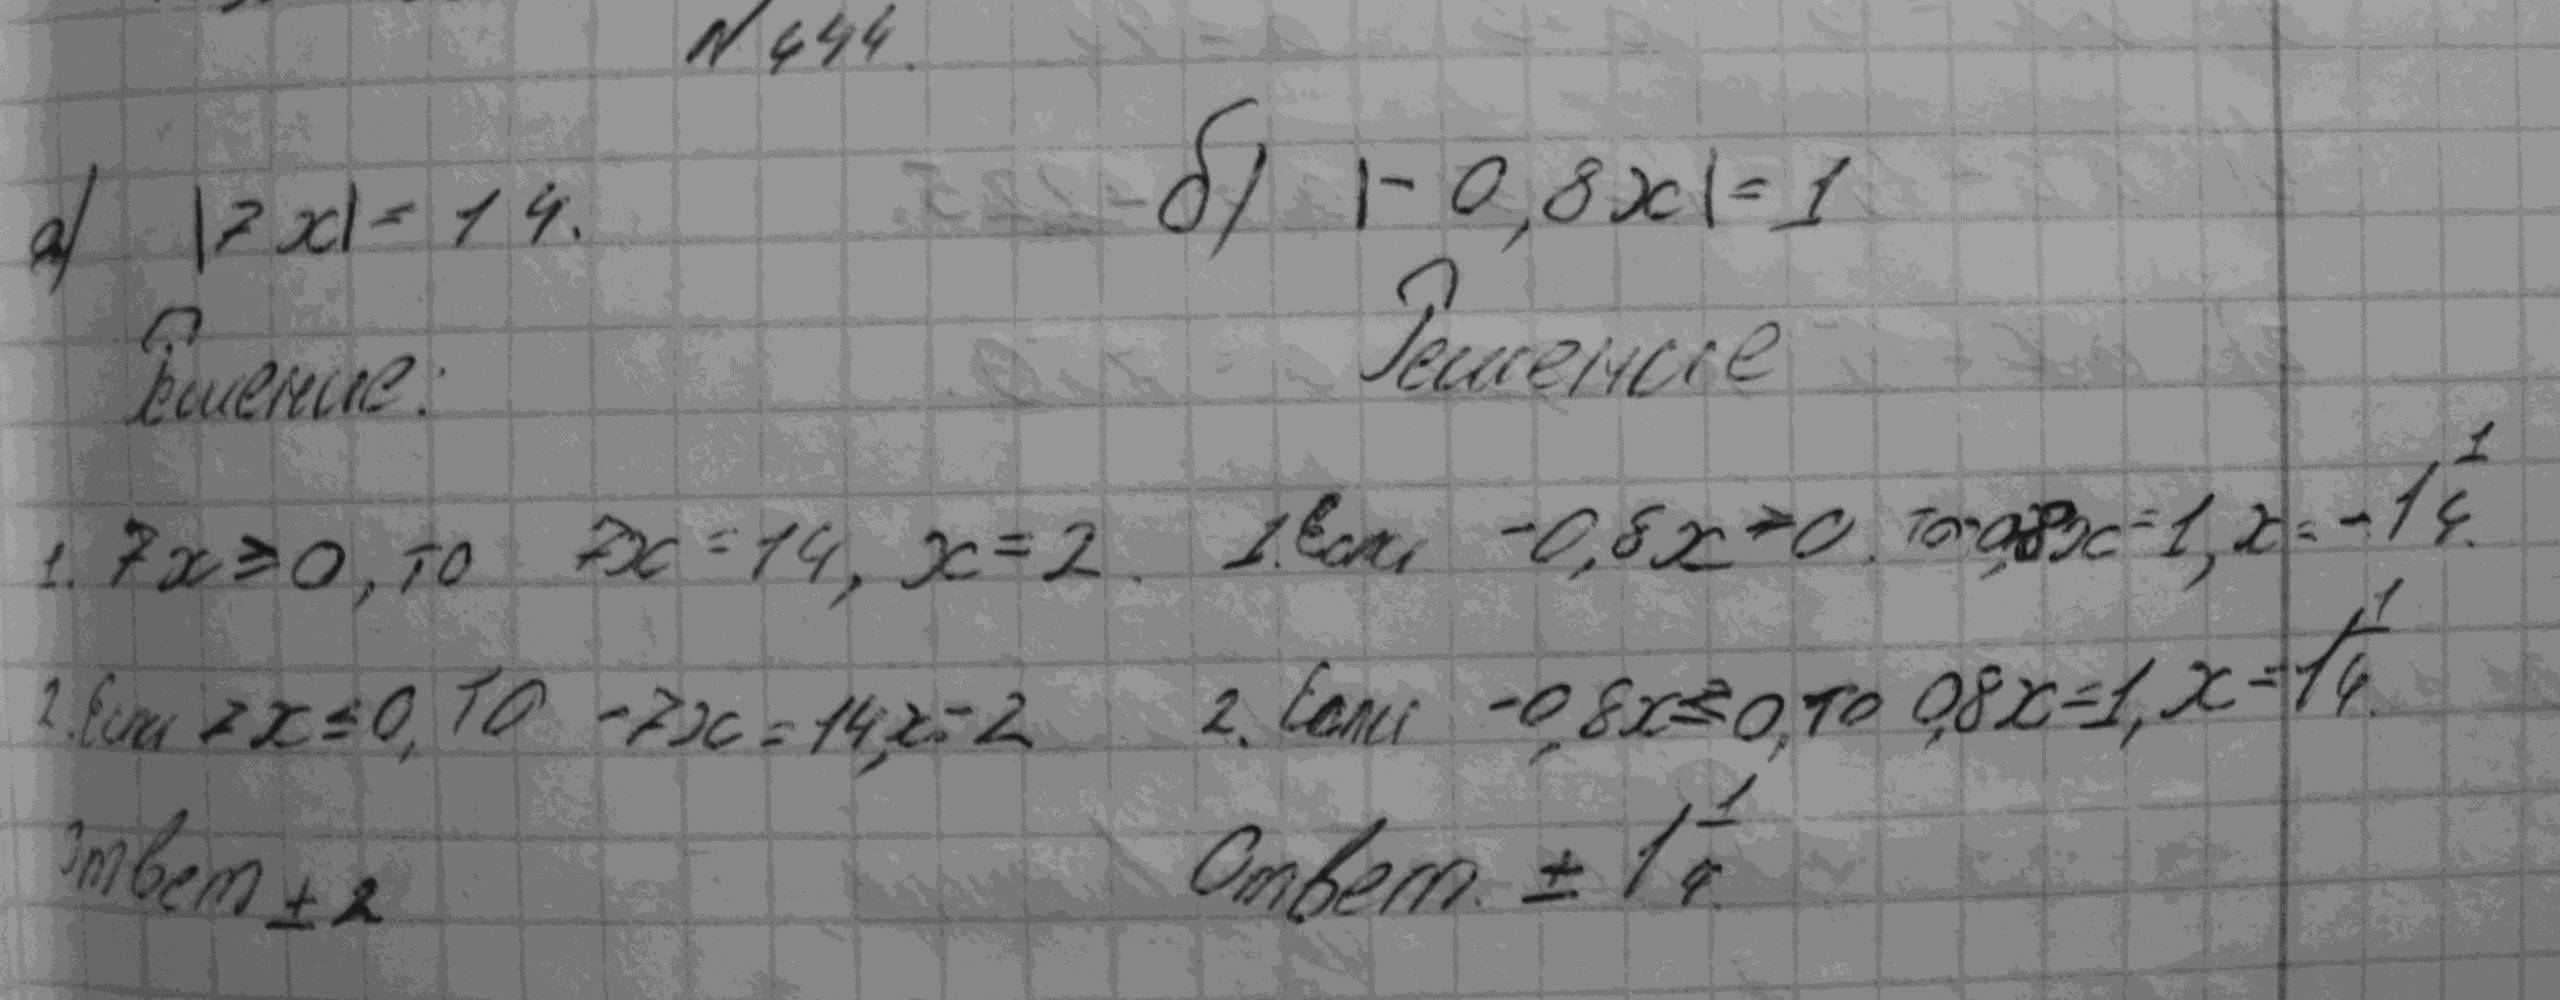 N 444.
а) |7x| = 14.
Решение:
1. 7x ≥ 0, то 7x = 14, x = 2.
2. Если 7x ≤ 0, то -7x = 14, x = -2
Ответ ± 2
б) |- 0,8x| = 1
Решение
1. Если -0,8x ≥ 0. то -0,8x = 1, x = -1 1/4.
2. Если -0,8x ≤ 0, то 0,8x = 1, x = 1 1/4.
Ответ. ± 1 1/4.